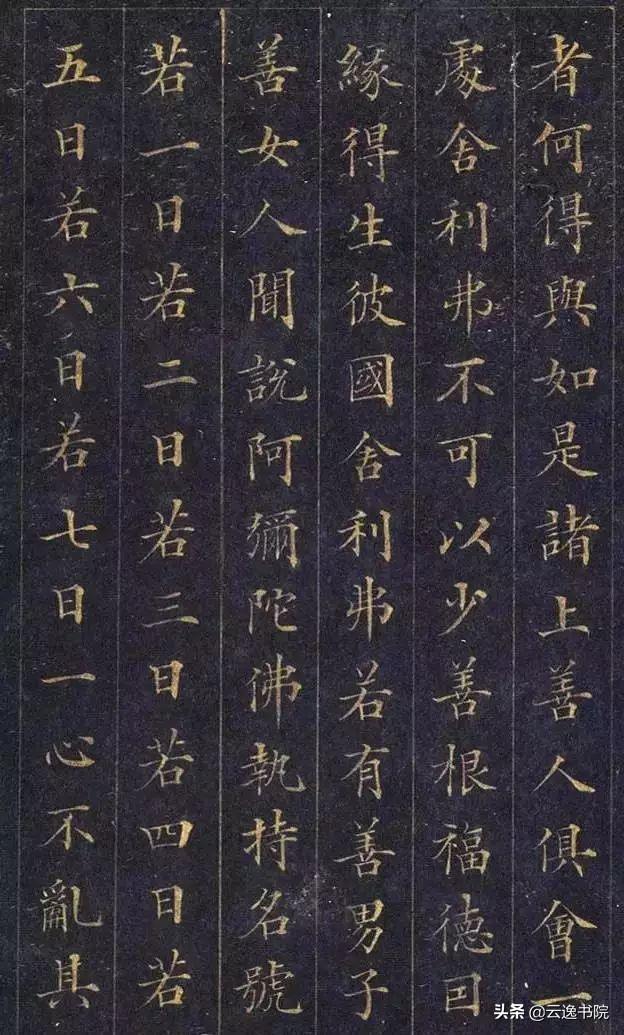 者何得與如是諸上善人俱會一
處舍利弗不可以少善根福德因
緣得生彼國舍利弗若有善男子
善女人聞說阿彌陀佛執持名號
若一日若二日若三日若四日若
五日若六日若七日一心不亂其
头条 @云逸书院